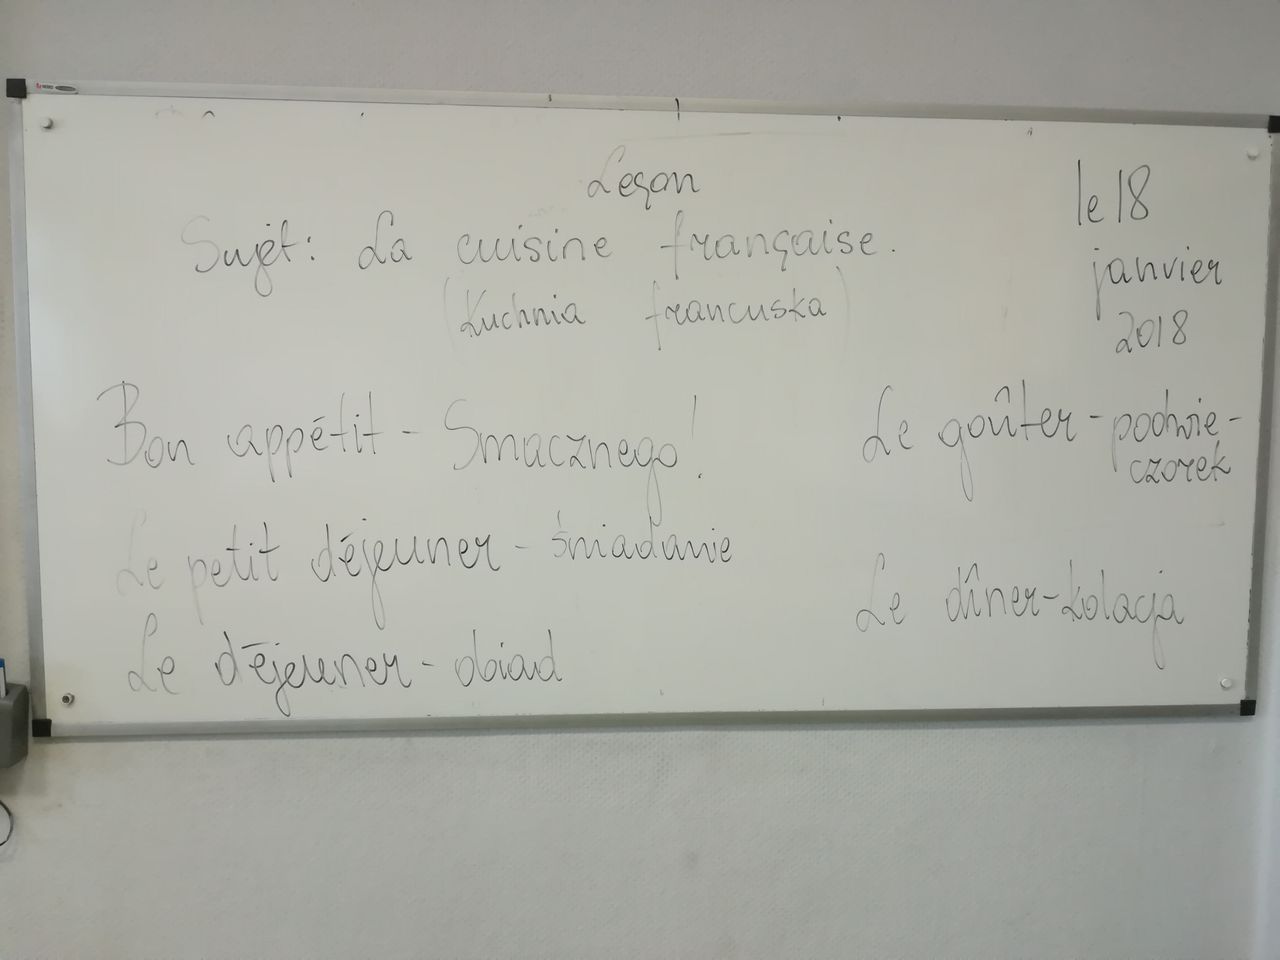 Leçon
le 18
janvier
2018
Sujet: La cuisine française.
(Kuchnia francuska)
Bon appétit - Smacznego!
Le petit déjeuner - śniadanie
Le déjeuner - obiad
Le goûter - podwie-
czorek
Le dîner - kolacja